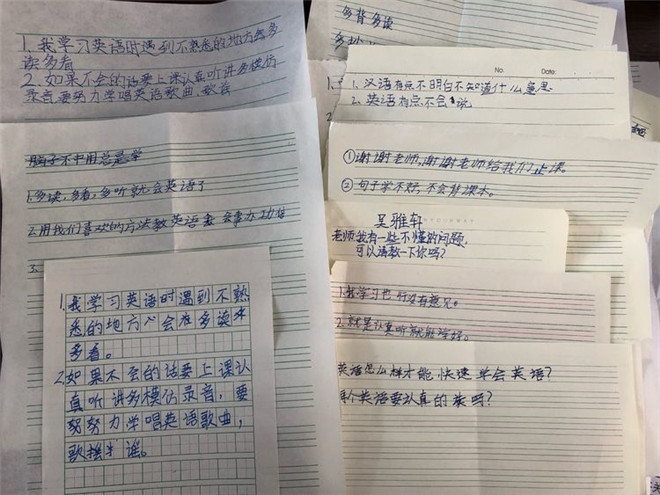 1. 我学习英语时遇到不熟悉的地方
读多看
2. 如果不会的话要上课认真听讲多模仿
录音,要努力学唱英语歌曲,歌
1.多读,多看,多听就会英语了
2.用我们喜欢的方法教英语
3.
1.我学习英语时遇到不熟
悉的地方 会 多读
多看。
2.如果不会的话要上课认
真听讲多模仿录音,要
努努力学唱英语歌曲,
歌 谣。
多背多读
No. Date.
1. 汉语有点不明白不知道什么意思
2. 英语有点不会 说
①谢谢老师,谢谢老师给我们上课。
②句子学不好,不会背课本。
吴雅轩
老师,我有一些不懂的问题,
可以请教一下你吗?
1.我学习也 没有意见。
2.就是认真听就能学好。
英语怎么样才能快速学会英语?
英语要认真的 吗?